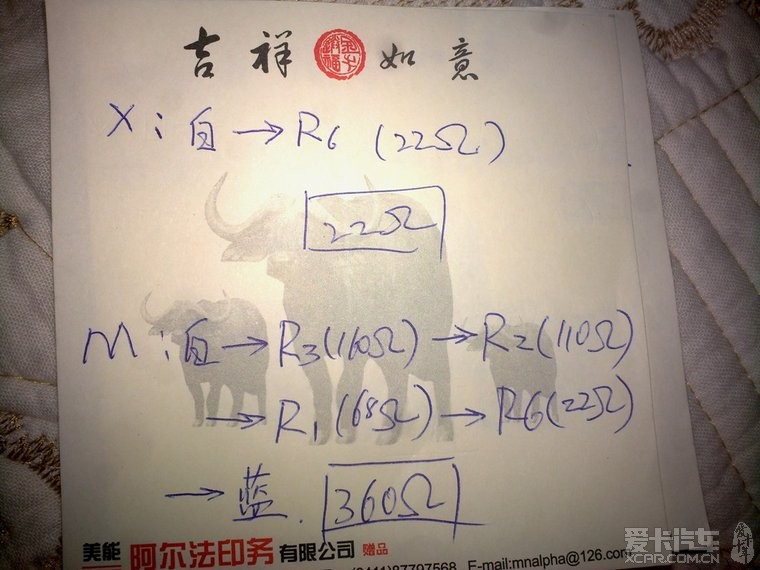 吉祥如意
X:白→R6(22Ω)
22Ω
M:白→R3(160Ω)→R2(110Ω)
→R1(68Ω)→R6(22Ω)
→蓝.360Ω
美能 阿尔法印务有限公司 赠品
(0411)87797568 E-mail:mnalpha@126.com
爱卡汽车
XCAR.COM.CN